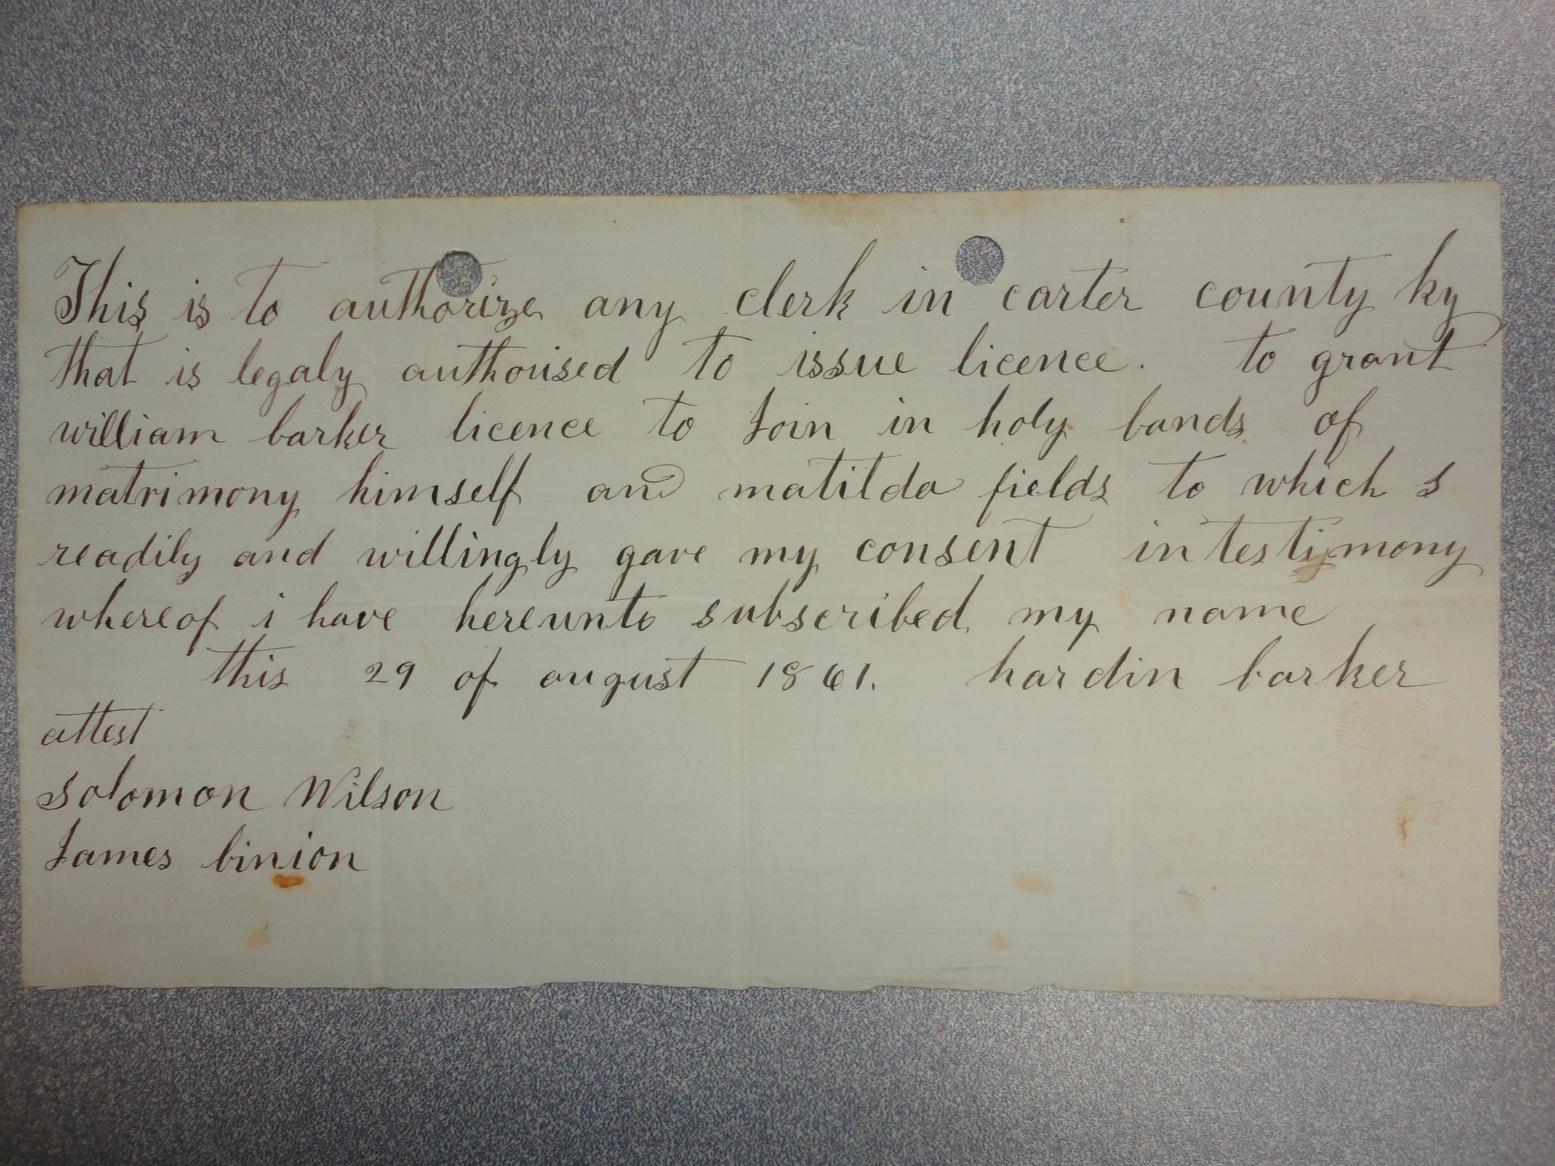 This is to authorize any clerk in carter county ky
that is legaly authorised to issue licence. to grant
william barker licence to Join in holy bands of
matrimony himself and matilda fields to which I
readily and willingly gave my consent in testimony
whereof i have hereunto subscribed my name
this 29 of august 1861. hardin barker
attest
Solomon Wilson
James binion